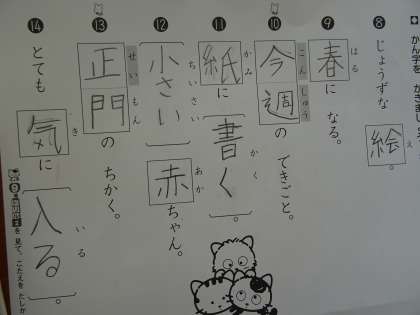 かん字を かきましょ
⑧ じょうずな 絵え。
⑨ 春はるに なる。
⑩ 今週こんしゅうの できごと。
⑪ 紙かみに 書かく。
⑫ 小ちいさい 赤あかちゃん。
⑬ 正門せいもんの ちかく。
⑭ とても 気きに 入いる。
を 見て、こたえを たしか